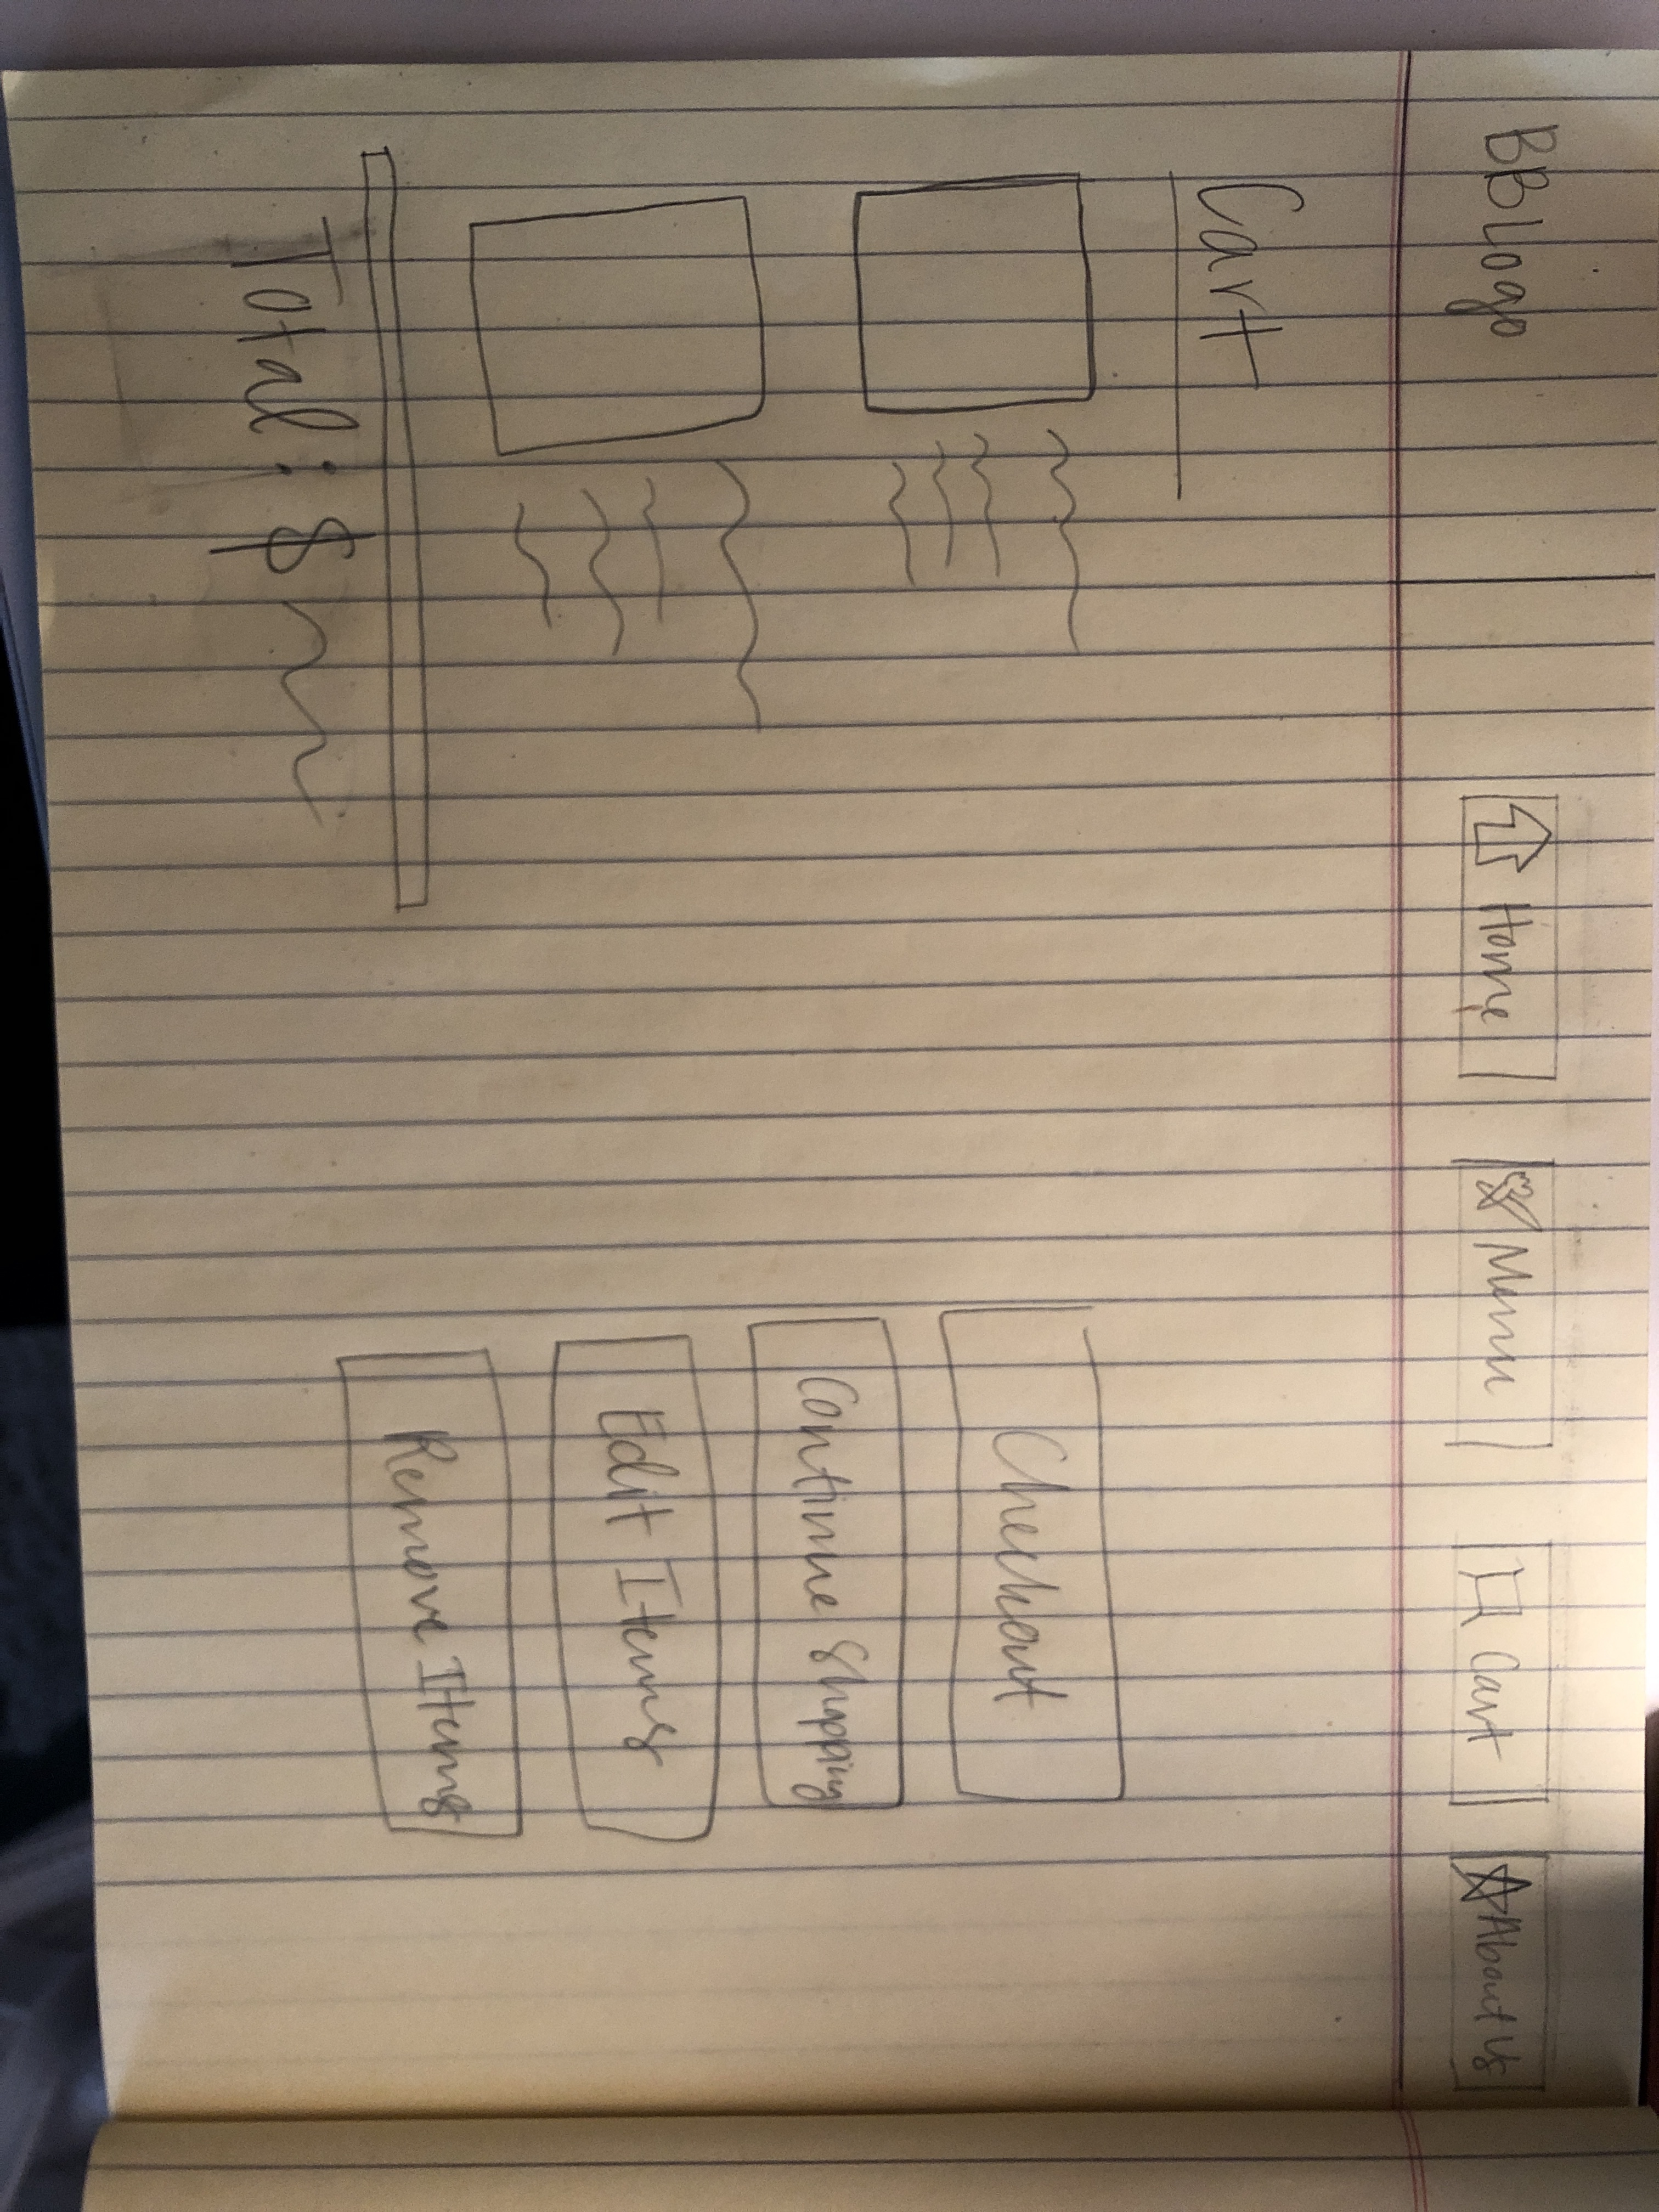 BB Logo
Home
Menu
Cart
About Us
Cart
Checkout
Continue Shopping
Edit Items
Remove Items
Total: $